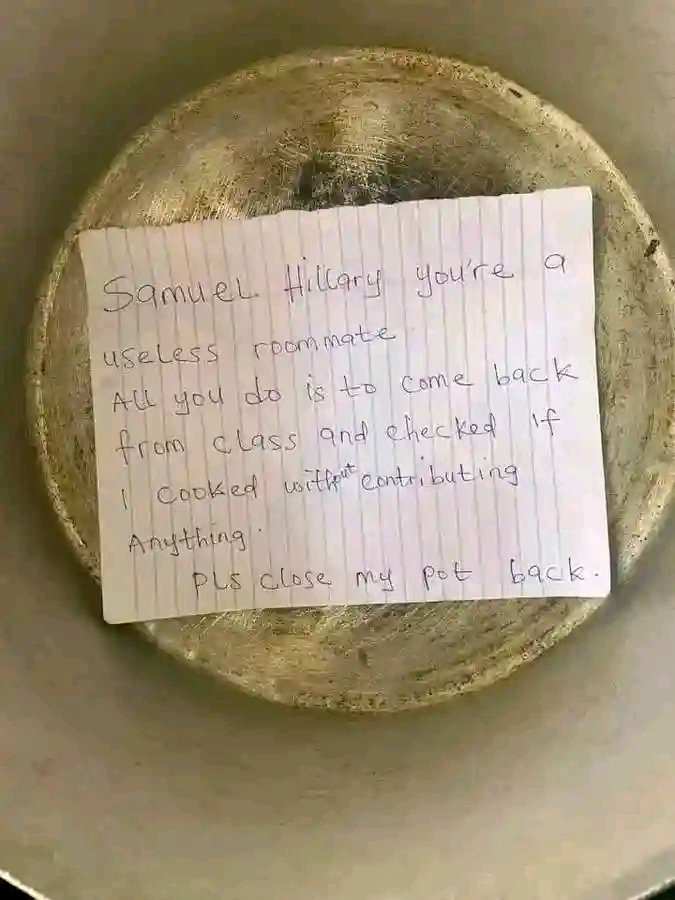 Samuel Hillary you're a
useless roommate
All you do is to come back
from class and checked if
I cooked without contributing
Anything.
Pls close my pot back.